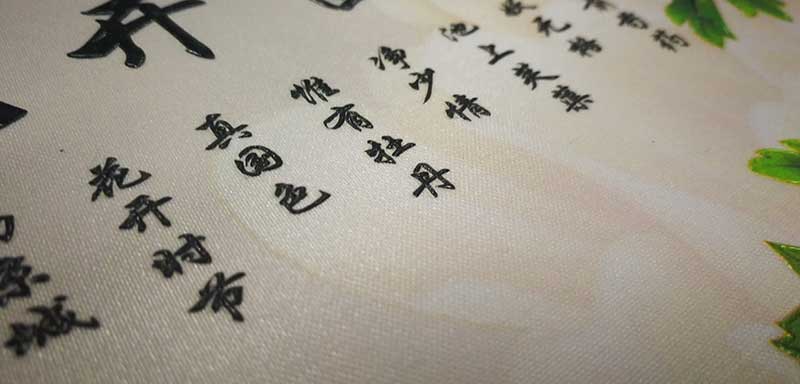 开
芍药
无格
池上芙蕖
净少情
惟有牡丹
真国色
花开时节
京城